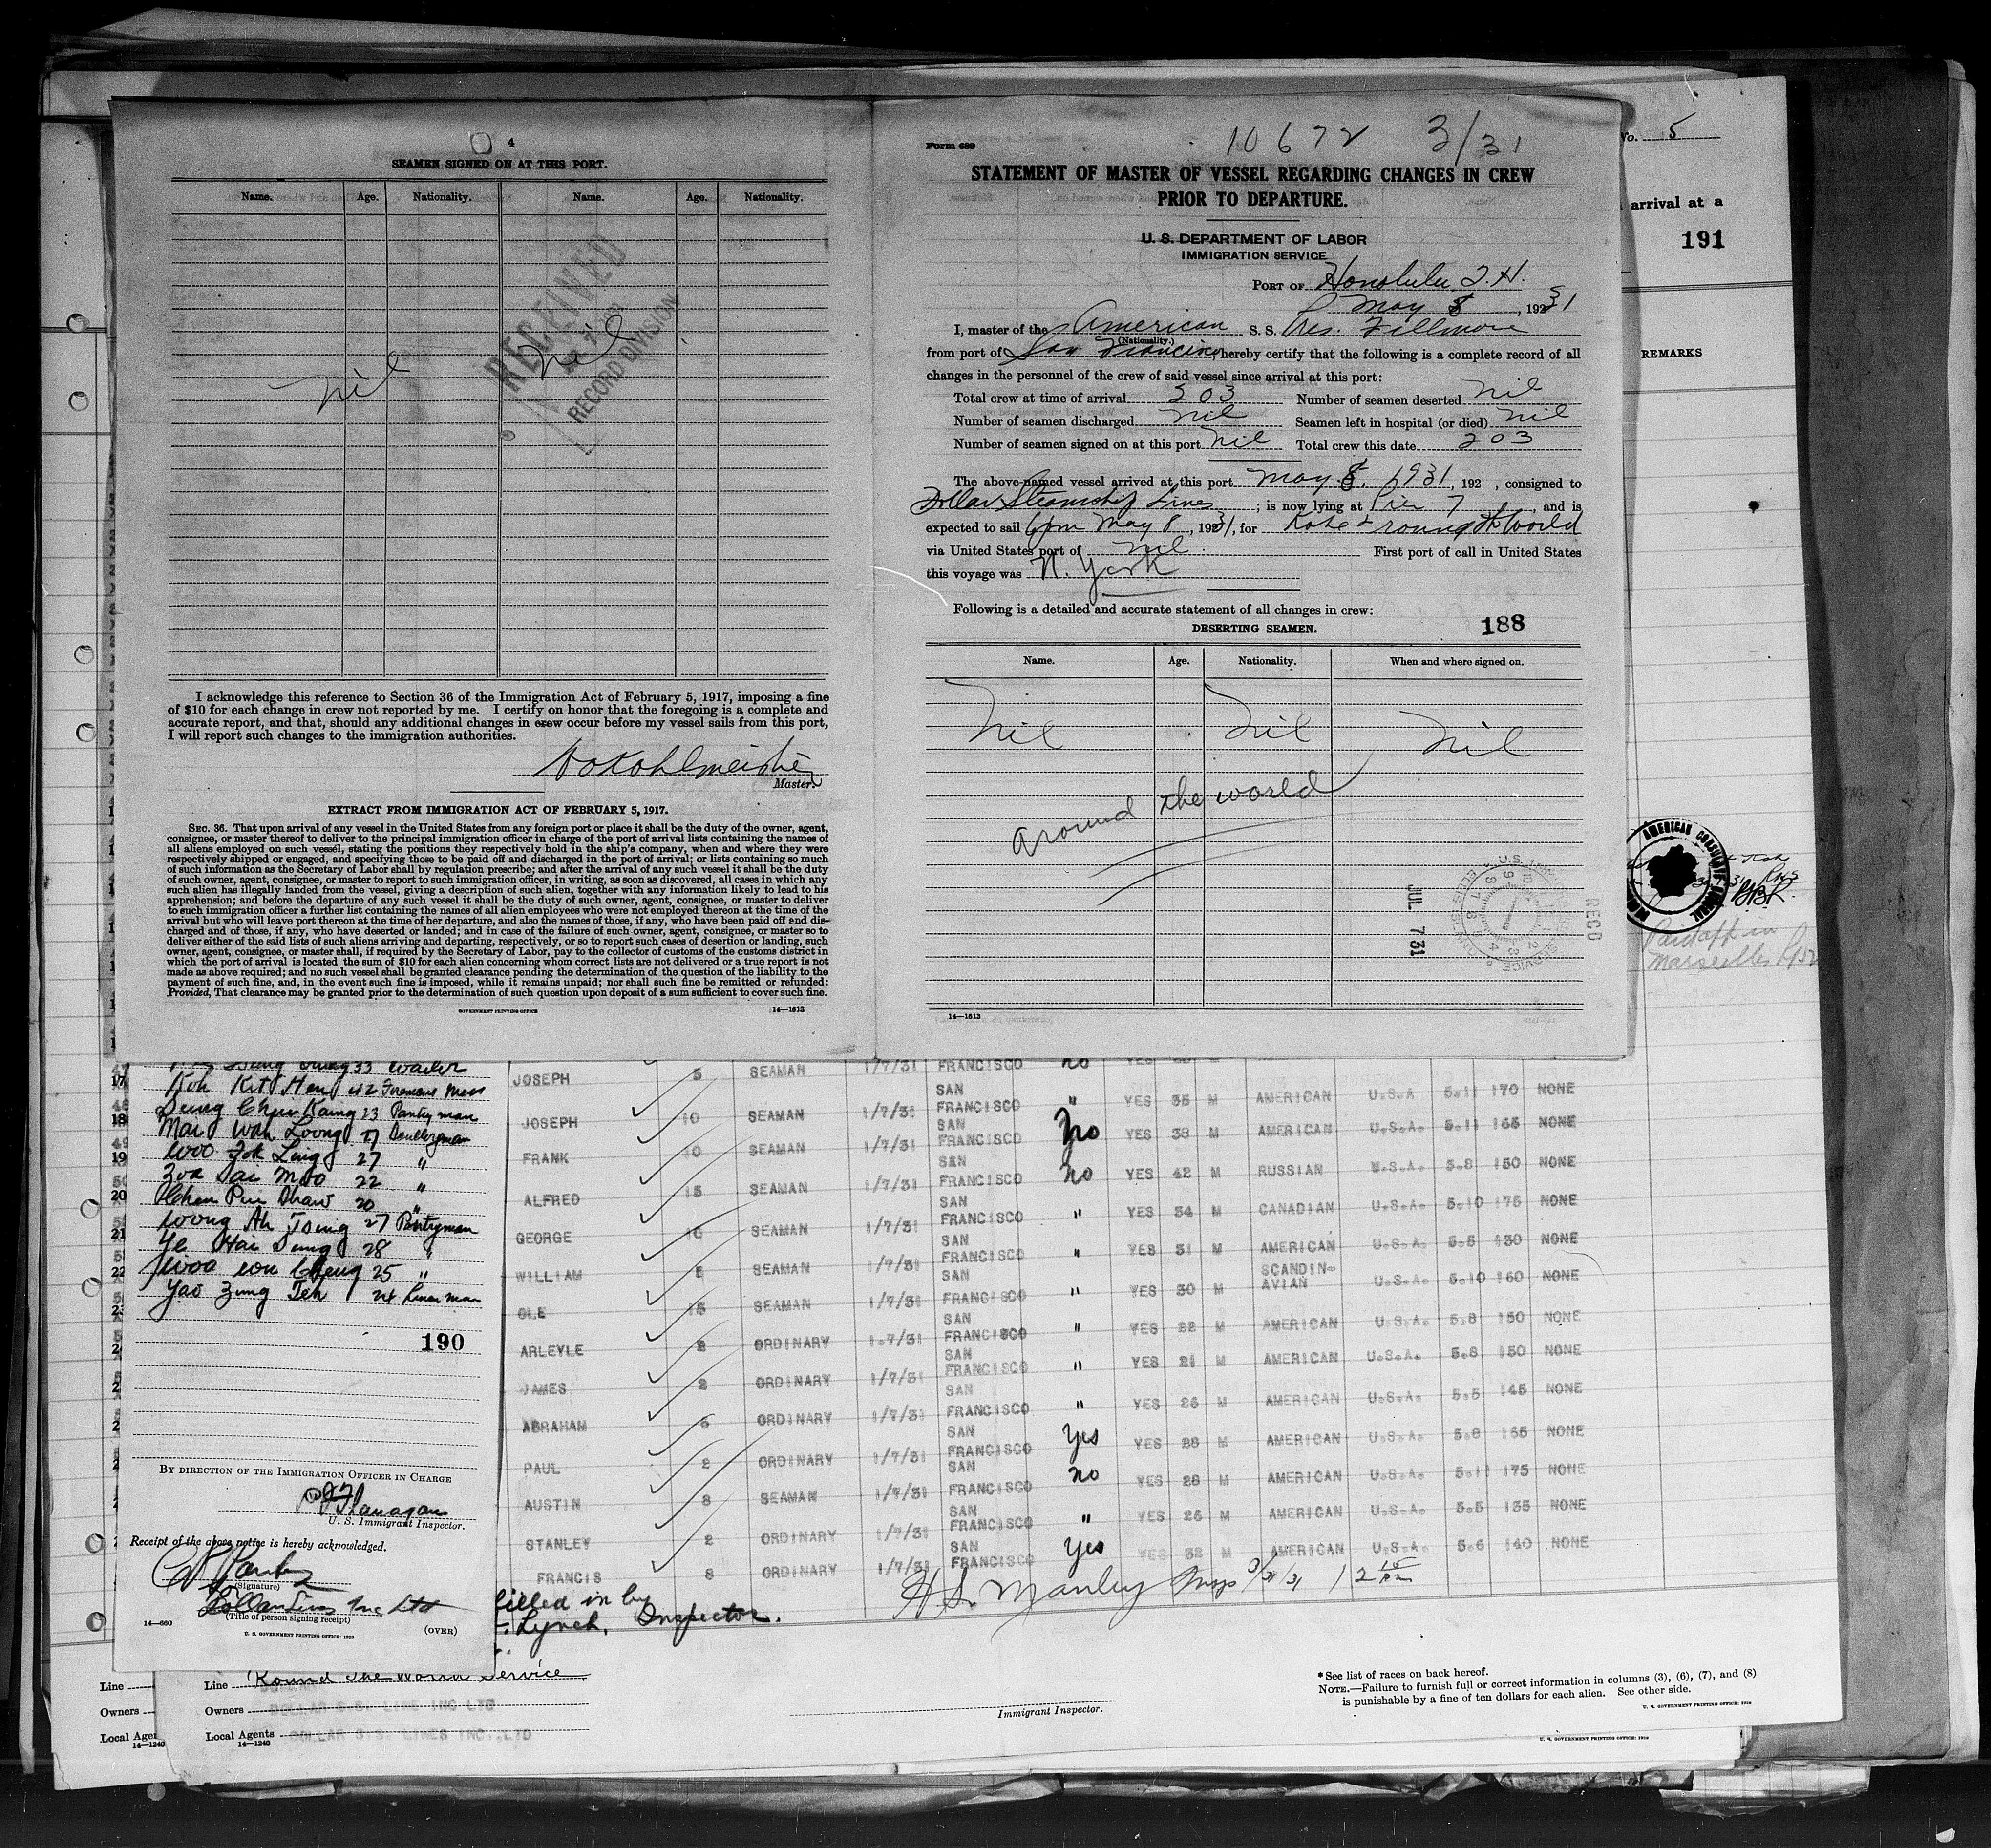 4
SEAMEN SIGNED ON AT THIS PORT.
Name. Age. Nationality. Name. Age. Nationality.
RECEIVED
RECORD DIVISION
Nil Nil
I acknowledge this reference to Section 36 of the Immigration Act of February 5, 1917, imposing a fine
of $10 for each change in crew not reported by me. I certify on honor that the foregoing is a complete and
accurate report, and that, should any additional changes in crew occur before my vessel sails from this port,
I will report such changes to the immigration authorities.
Kohlmeister
Master.
EXTRACT FROM IMMIGRATION ACT OF FEBRUARY 5, 1917.
SEC. 36. That upon arrival of any vessel in the United States from any foreign port or place it shall be the duty of the owner, agent,
consignee, or master thereof to deliver to the principal immigration officer in charge of the port of arrival lists containing the names of
all aliens employed on such vessel, stating the positions they respectively hold in the ship's company, when and where they were
respectively shipped or engaged, and specifying those to be paid off and discharged in the port of arrival; or lists containing so much
of such information as the Secretary of Labor shall by regulation prescribe; and after the arrival of any such vessel it shall be the duty
of such owner, agent, consignee, or master to report to such immigration officer, in writing, as soon as discovered, all cases in which any
such alien has illegally landed from the vessel, giving a description of such alien, together with any information likely to lead to his
apprehension; and before the departure of any such vessel it shall be the duty of such owner, agent, consignee, or master to deliver
to such immigration officer a further list containing the names of all alien employees who were not employed thereon at the time of the
arrival but who will leave port thereon at the time of her departure, and also the names of those, if any, who have been paid off and dis-
charged and of those, if any, who have deserted or landed; and in case of the failure of such owner, agent, consignee, or master so to
deliver either of the said lists of such aliens arriving and departing, respectively, or so to report such cases of desertion or landing, such
owner, agent, consignee, or master shall, if required by the Secretary of Labor, pay to the collector of customs of the customs district in
which the port of arrival is located the sum of $10 for each alien concerning whom correct lists are not delivered or a true report is not
made as above required; and no such vessel shall be granted clearance pending the determination of the question of the liability to the
payment of such fine, and, in the event such fine is imposed, while it remains unpaid; nor shall such fine be remitted or refunded:
Provided, That clearance may be granted prior to the determination of such question upon deposit of a sum sufficient to cover such fine.
GOVERNMENT PRINTING OFFICE 14—1613
10672 3/31
Form 689
STATEMENT OF MASTER OF VESSEL REGARDING CHANGES IN CREW
PRIOR TO DEPARTURE.
U. S. DEPARTMENT OF LABOR
IMMIGRATION SERVICE
PORT OF Honolulu, T.H.
May 8, 1931
I, master of the American S. S. Pres. Fillmore
(Nationality.)
from port of San Francisco hereby certify that the following is a complete record of all
changes in the personnel of the crew of said vessel since arrival at this port:
Total crew at time of arrival 203 Number of seamen deserted Nil
Number of seamen discharged Nil Seamen left in hospital (or died) Nil
Number of seamen signed on at this port Nil Total crew this date 203
The above-named vessel arrived at this port May 8. 1931, 192 , consigned to
Dollar Steamship Lines ; is now lying at Pier 7 , and is
expected to sail 6pm May 8, 1931, for Kobe & round the World
via United States port of Nil First port of call in United States
this voyage was N. York
Following is a detailed and accurate statement of all changes in crew:
DESERTING SEAMEN. 188
Name. Age. Nationality. When and where signed on.
Nil Nil Nil
around the world
RECD
JUL 7 31
14—1613
No. 5
arrival at a
191
REMARKS
AMERICAN CONSULATE GENERAL
Paid off in
Marseilles
17 Koh Kit Hen 42
18 Mai Wah Loong
19 Woo Zok Ling 27 "
Zok Tai Moo 22 "
20 Chen Pin Shaw 20 "
Woong Ah Tsung 27 Pantryman
21 Ye Hai Sung 28 "
22 Woo Won Cheng 25 "
Yao Zung Teh 24 Linen man
23
190
BY DIRECTION OF THE IMMIGRATION OFFICER IN CHARGE
Flanagan
U. S. Immigrant Inspector.
Receipt of the above notice is hereby acknowledged.
(Signature)
Dollar Lines Inc Ltd
(Title of person signing receipt)
14—660 (OVER)
U. S. GOVERNMENT PRINTING OFFICE: 1929
JOSEPH 5 SEAMAN 1/7/31 FRANCISCO no
JOSEPH 10 SEAMAN 1/7/31 SAN FRANCISCO " YES 35 M AMERICAN U.S.A 5.11 170 NONE
FRANK 10 SEAMAN 1/7/31 SAN FRANCISCO no YES 38 M AMERICAN U.S.A. 5.11 165 NONE
ALFRED 15 SEAMAN 1/7/31 SAN FRANCISCO no YES 42 M RUSSIAN U.S.A. 5.8 150 NONE
GEORGE 10 SEAMAN 1/7/31 SAN FRANCISCO " YES 34 M CANADIAN U.S.A. 5.10 175 NONE
WILLIAM 8 SEAMAN 1/7/31 SAN FRANCISCO " YES 31 M AMERICAN U.S.A. 5.5 130 NONE
OLE 15 SEAMAN 1/7/31 SAN FRANCISCO " YES 30 M SCANDIN-AVIAN U.S.A. 5.10 160 NONE
ARLEYLE 2 ORDINARY 1.7/31 SAN FRANCISCO " YES 22 M AMERICAN U.S.A. 5.8 150 NONE
JAMES 2 ORDINARY 1/7/31 SAN FRANCISCO " YES 21 M AMERICAN U.S.A. 5.8 150 NONE
ABRAHAM 6 ORDINARY 1/7/31 SAN FRANCISCO " YES 26 M AMERICAN U.S.A. 5.5 145 NONE
PAUL 2 ORDINARY 1/7/31 SAN FRANCISCO Yes YES 28 M AMERICAN U.S.A. 5.8 155 NONE
AUSTIN 8 SEAMAN 1/7/31 SAN FRANCISCO no YES 28 M AMERICAN U.S.A. 5.11 175 NONE
STANLEY 2 ORDINARY 1/7/31 SAN FRANCISCO " YES 25 M AMERICAN U.S.A. 5.5 135 NONE
FRANCIS 8 ORDINARY 1/7/31 SAN FRANCISCO Yes YES 32 M AMERICAN U.S.A. 5.6 140 NONE
H. S. Manley Insp 3/31/31
filled in by
Lynch, Inspector.
Line
Owners
Local Agen
14—1240
Line Round The World Service
Owners DOLLAR S.S. LINE INC LTD
Local Agents DOLLAR S.S. LINES INC.,LTD
14—1240
Immigrant Inspector.
*See list of races on back hereof.
NOTE.—Failure to furnish full or correct information in columns (3), (6), (7), and (8)
is punishable by a fine of ten dollars for each alien. See other side.
U. S. GOVERNMENT PRINTING OFFICE: 1929
U. S. GOVERNMENT PRINTING OFFICE: 1929